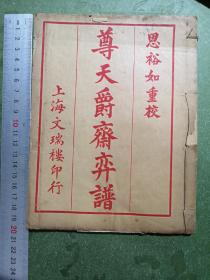 思裕如重校
尊天爵齋弈譜
上海文瑞樓印行